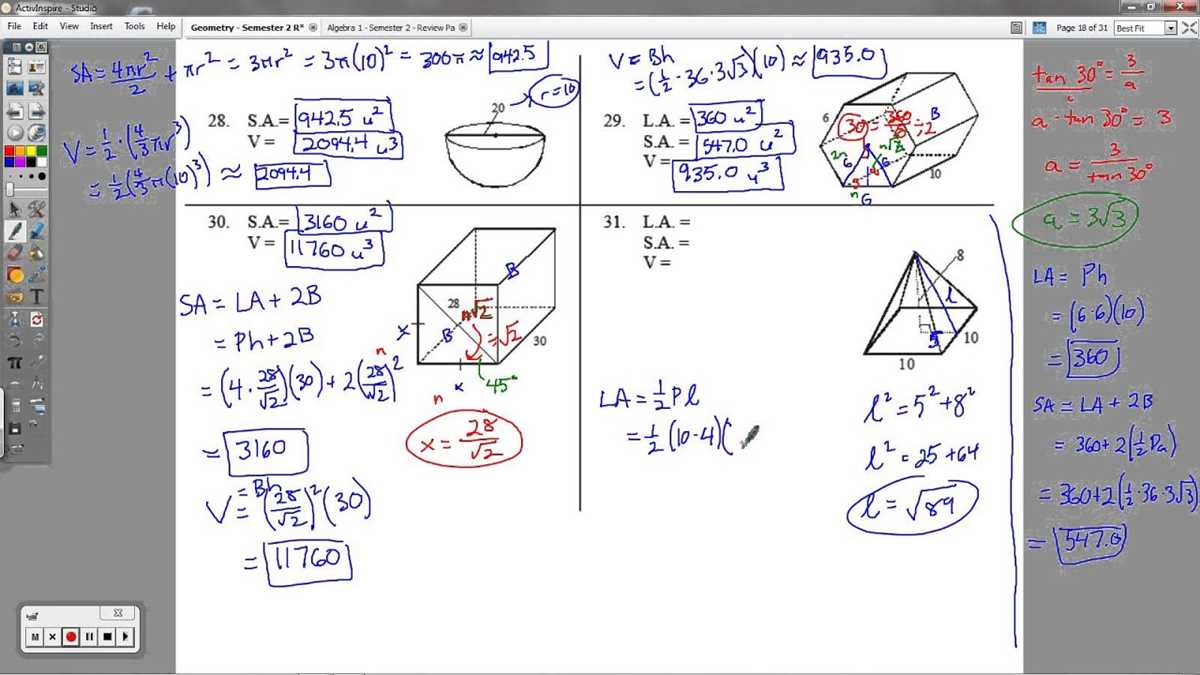 ActivInspire - Studio
File Edit View Insert Tools Help
Geometry - Semester 2 R* Algebra 1 - Semester 2 - Review Pa
Page 18 of 31 Best Fit
SA = 4πr²/2 + πr² = 3πr² = 3π(10)² = 300π ≈ 942.5
28. S.A.= 942.5 u²
V = 2094.4 u³
V = 1/2 · (4/3 πr³)
= 1/2 (4/3 π(10)³) ≈ 2094.4
20
r = 10
V = Bh
= (1/2 · 36 · 3√3)(10) ≈ 935.0
29. L.A. = 360 u²
S.A. = 547.0 u²
V = 935.0 u³
6
30 = 360/6 ÷ 2
B
2n
n√3
6
6
3
n
6
10
tan 30° = 3/a
a · tan 30° = 3
a = 3/tan 30°
a = 3√3
LA = Ph
= (6·6)(10)
= 360
SA = LA + 2B
= 360 + 2(1/2 Pa)
= 360 + 2(1/2 · 36 · 3√3)
= 547.0
30. S.A.= 3160 u²
V = 11760 u³
SA = LA + 2B
= Ph + 2B
= (4 · 28/√2)(30) + 2(28/√2)²
= 3160
V = Bh
= (28/√2)²(30)
= 11760
B
28
n√2
÷√2
B
x
n
30
x
45°
n
x = 28/√2
31. L.A. =
S.A. =
V =
8
l
5
10
10
LA = 1/2 Pl
= 1/2 (10·4)(
l² = 5² + 8²
l² = 25 + 64
l = √89